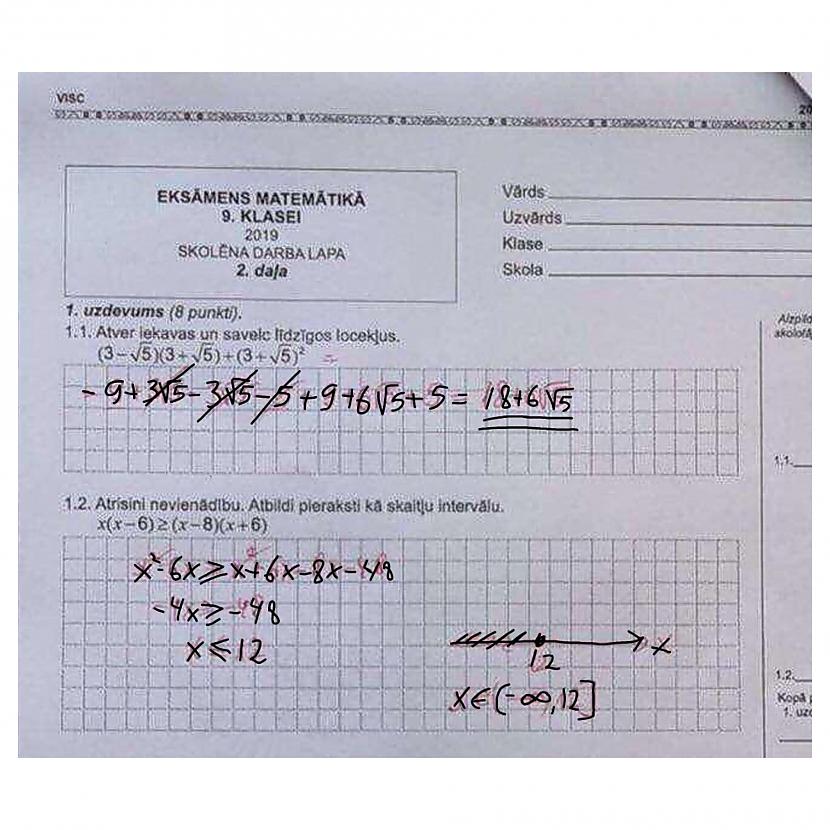 VISC
20
EKSĀMENS MATEMĀTIKĀ
9. KLASEI
2019
SKOLĒNA DARBA LAPA
2. daļa
Vārds
Uzvārds
Klase
Skola
1. uzdevums (8 punkti).
1.1. Atver iekavas un savelc līdzīgos locekļus.
(3−√5)(3+√5)+(3+√5)² =
- 9+3√5-3√5-5+9+6√5+5= 18+6√5
1.1.
1.2. Atrisini nevienādību. Atbildi pieraksti kā skaitļu intervālu.
x(x−6)≥(x−8)(x+6)
x²-6x≥x²+6x-8x-48
-4x≥-48
x≤12
12
x
x∈(-∞,12]
1.2.
Kopā
1. uzd